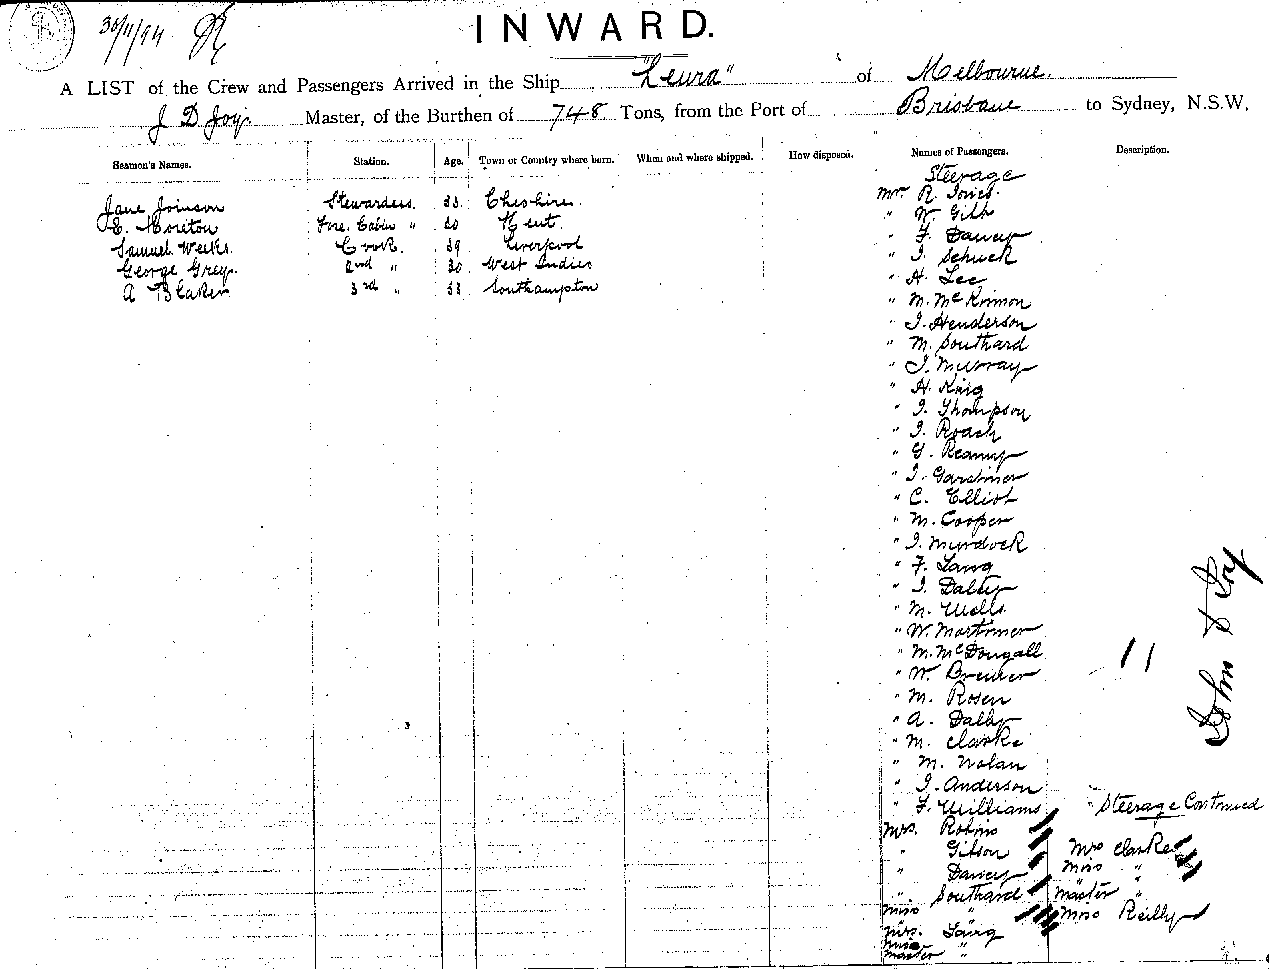 30/11/94
INWARD.
A LIST of the Crew and Passengers Arrived in the Ship "Leura" of Melbourne
J D Joy Master, of the Burthen of 748 Tons, from the Port of Brisbane to Sydney, N.S.W.
Seamen's Names. Station. Age. Town or Country where born. When and where shipped. How disposed. Names of Passengers. Description.
Jane Joinson Stewardess. 33. Cheshire.
E. Moreton Fore. Cabin " 20 Kent.
Samuel Weeks. Cook. 39 Liverpool
George Grey. 2nd " 30 West Indies
A Blaker 3rd " 53 Southampton
Steerage
Mr. R. Jones.
" W. Gill
" F. Dancey
" J. Schuck
" H. Lee
" M. McKinnon
" J. Henderson
" M. Southard
" J. Murray
" H. King
" J. Thompson
" J. Roach
" G. Reaney
" J. Gardiner
" C. Elliot
" M. Cooper
" J. Murdock
" F. Lang
" J. Dalby
" M. Wells
" W. Mortimer
" M. McDougall
" W. Brewer
" M. Rosen
" A. Dalby
" M. Clarke
" M. Nolan
" J. Anderson
" F. Williams.
Mrs. Robins
" Gibson
" Dancey
" Southard
Miss "
Mrs. Lang
Miss
Master "
Steerage Continued
Mrs Clarke
Miss "
Master "
Miss Reilly
11
John D Joy